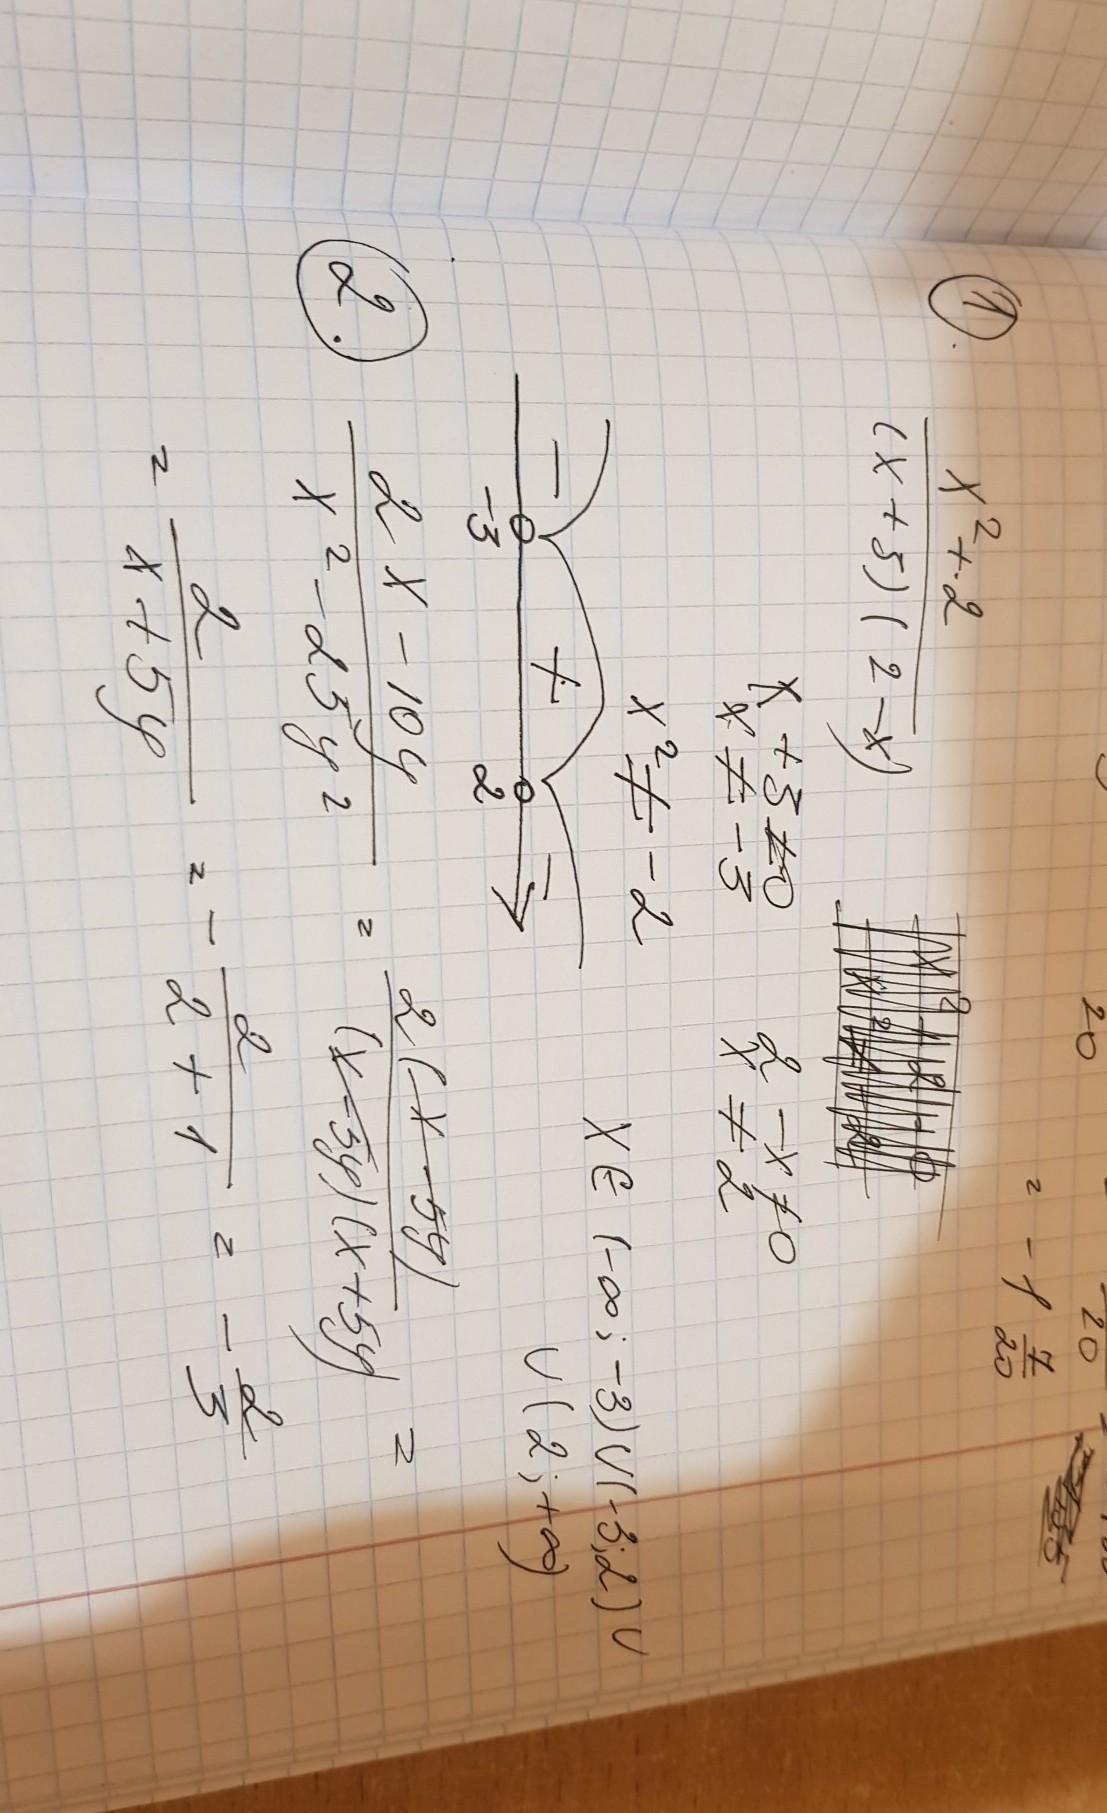 20
20
= -1 7/20
① (x²+2)/((x+3)(2-x))
x+3≠0 2-x≠0
x≠-3 x≠2
x²≠-2
- + -
-3 2
x∈(-∞;-3)∪(-3;2)∪
∪(2;+∞)
②. (2x-10y)/(x²-25y²) = (2(x-5y))/((x-5y)(x+5y) =
= 2/(x+5y) = -2/(2+1) = -2/3